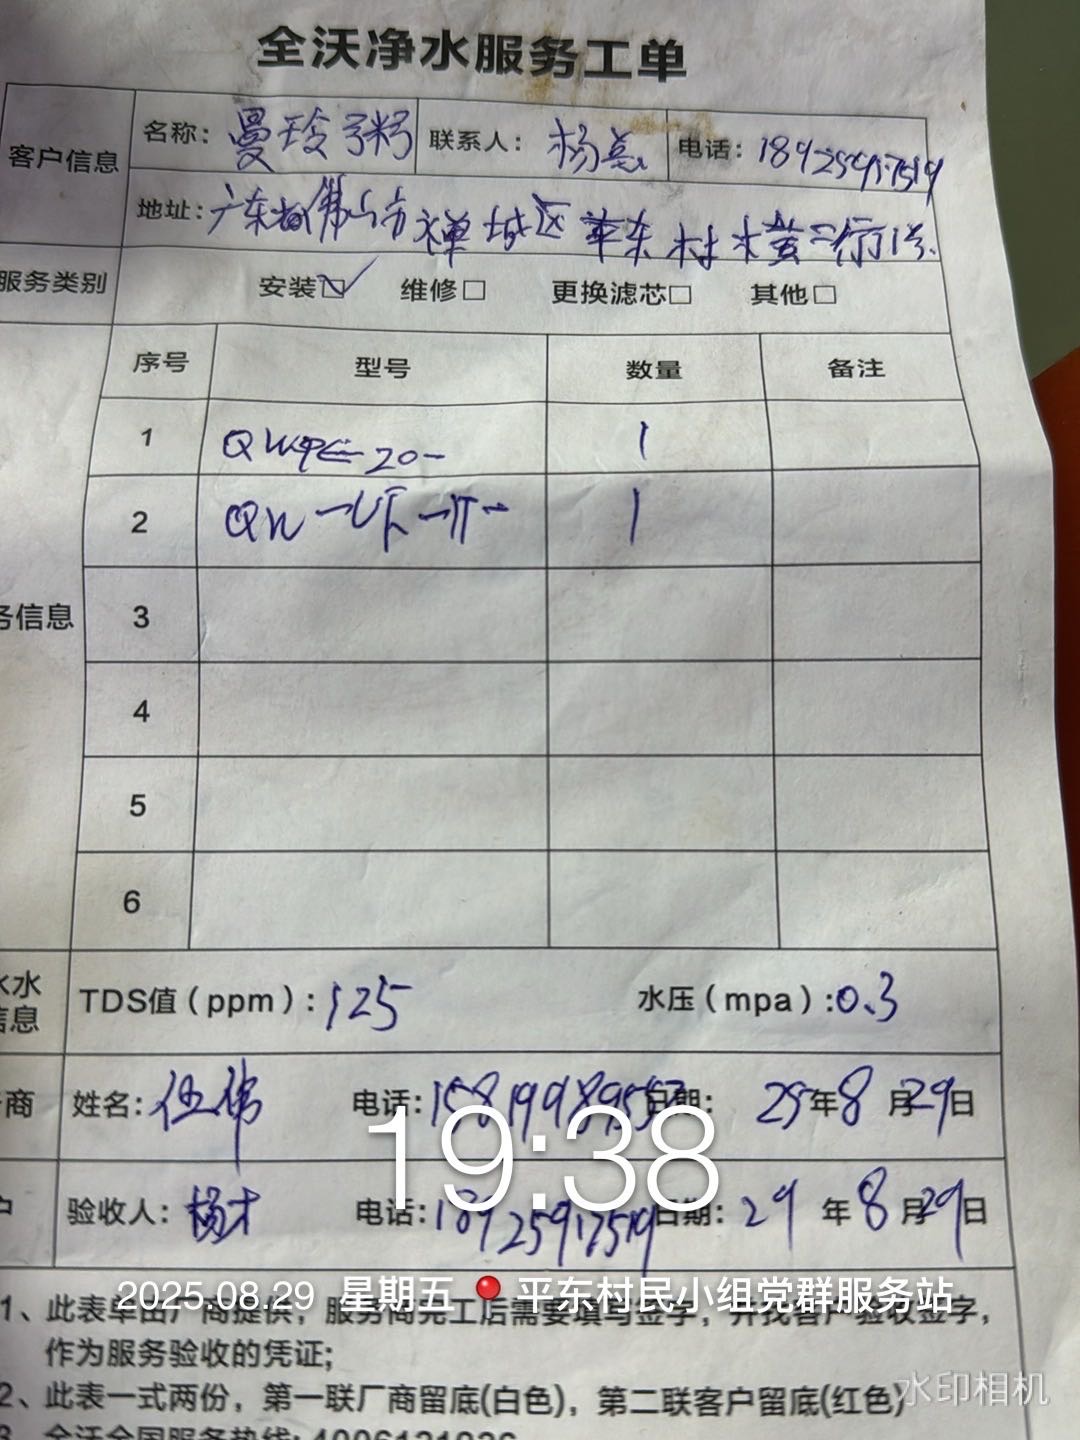 全沃净水服务工单
客户信息 名称：曼玲粥 联系人：杨 电话：18925917519
地址：广东省佛山市禅城区 东村 二行1号
服务类别 安装☑ 维修□ 更换滤芯□ 其他□
序号 型号 数量 备注
1 20- 1
2 QW 1
务信息 3
4
5
6
水水
信息
TDS值（ppm）：125 水压（mpa）：0.3
商 姓名：伍伟 电话： 日期：25年8月29日
户 验收人：杨才 电话：18925917519 日期：29年8月29日
19:38
2025.08.29 星期五 平东村民小组党群服务站
1、此表单由厂商提供，服务商完工后需要填写签字，并找客户验收签字，
作为服务验收的凭证；
2、此表一式两份，第一联厂商留底(白色)，第二联客户留底(红色)
水印相机
3、全沃全国服务热线：